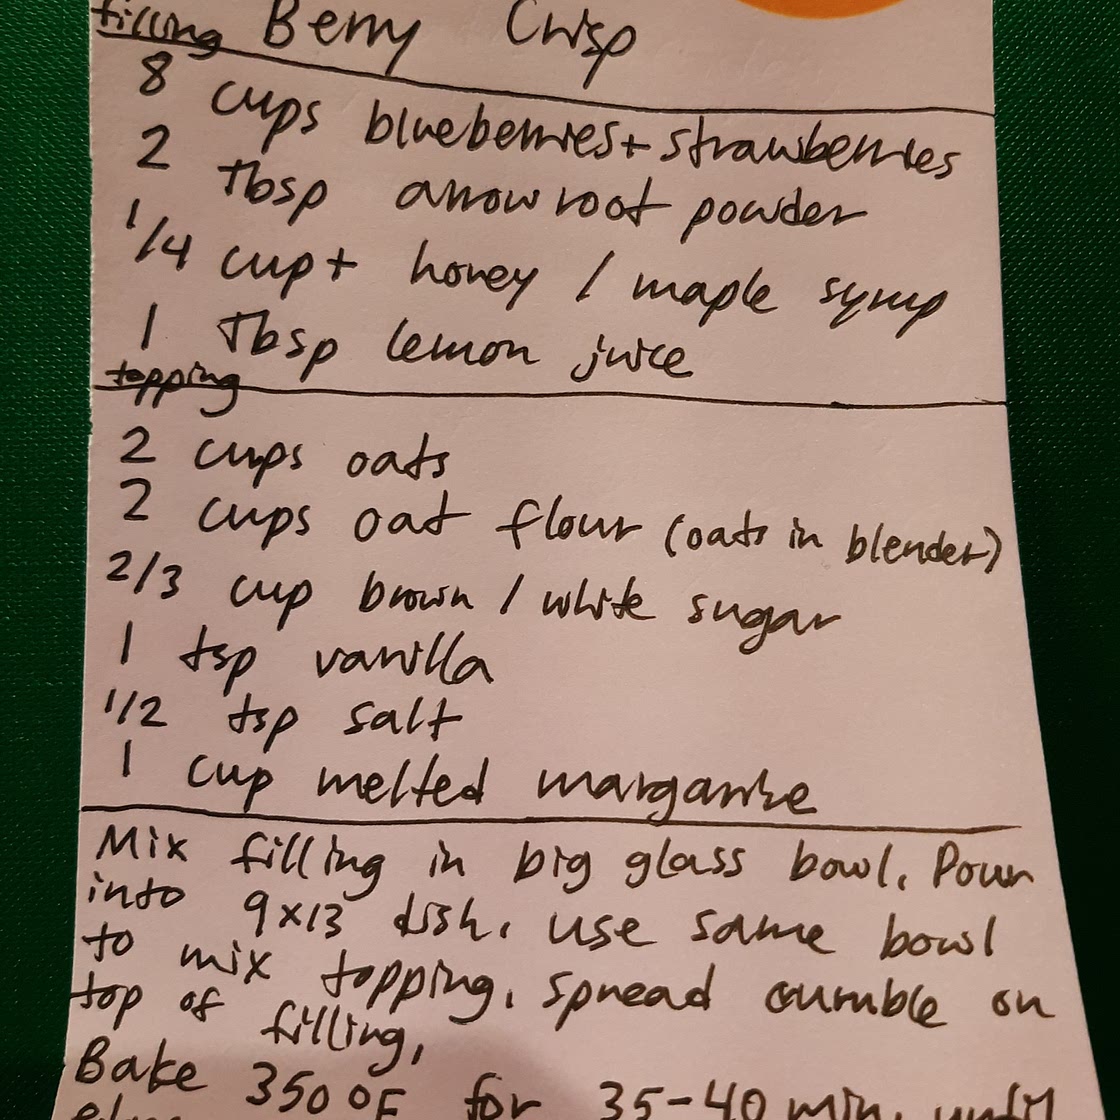 Berry Crisp
filling
8 cups blueberries + strawberries
2 Tbsp arrowroot powder
1/4 cup + honey / maple syrup
1 Tbsp lemon juice
topping
2 cups oats
2 cups oat flour (oats in blender)
2/3 cup brown / white sugar
1 tsp vanilla
1/2 tsp salt
1 cup melted margarine
Mix filling in big glass bowl. Pour
into 9x13 dish. use same bowl
to mix topping. Spread crumble on
top of filling.
Bake 350°F for 35-40 min. until